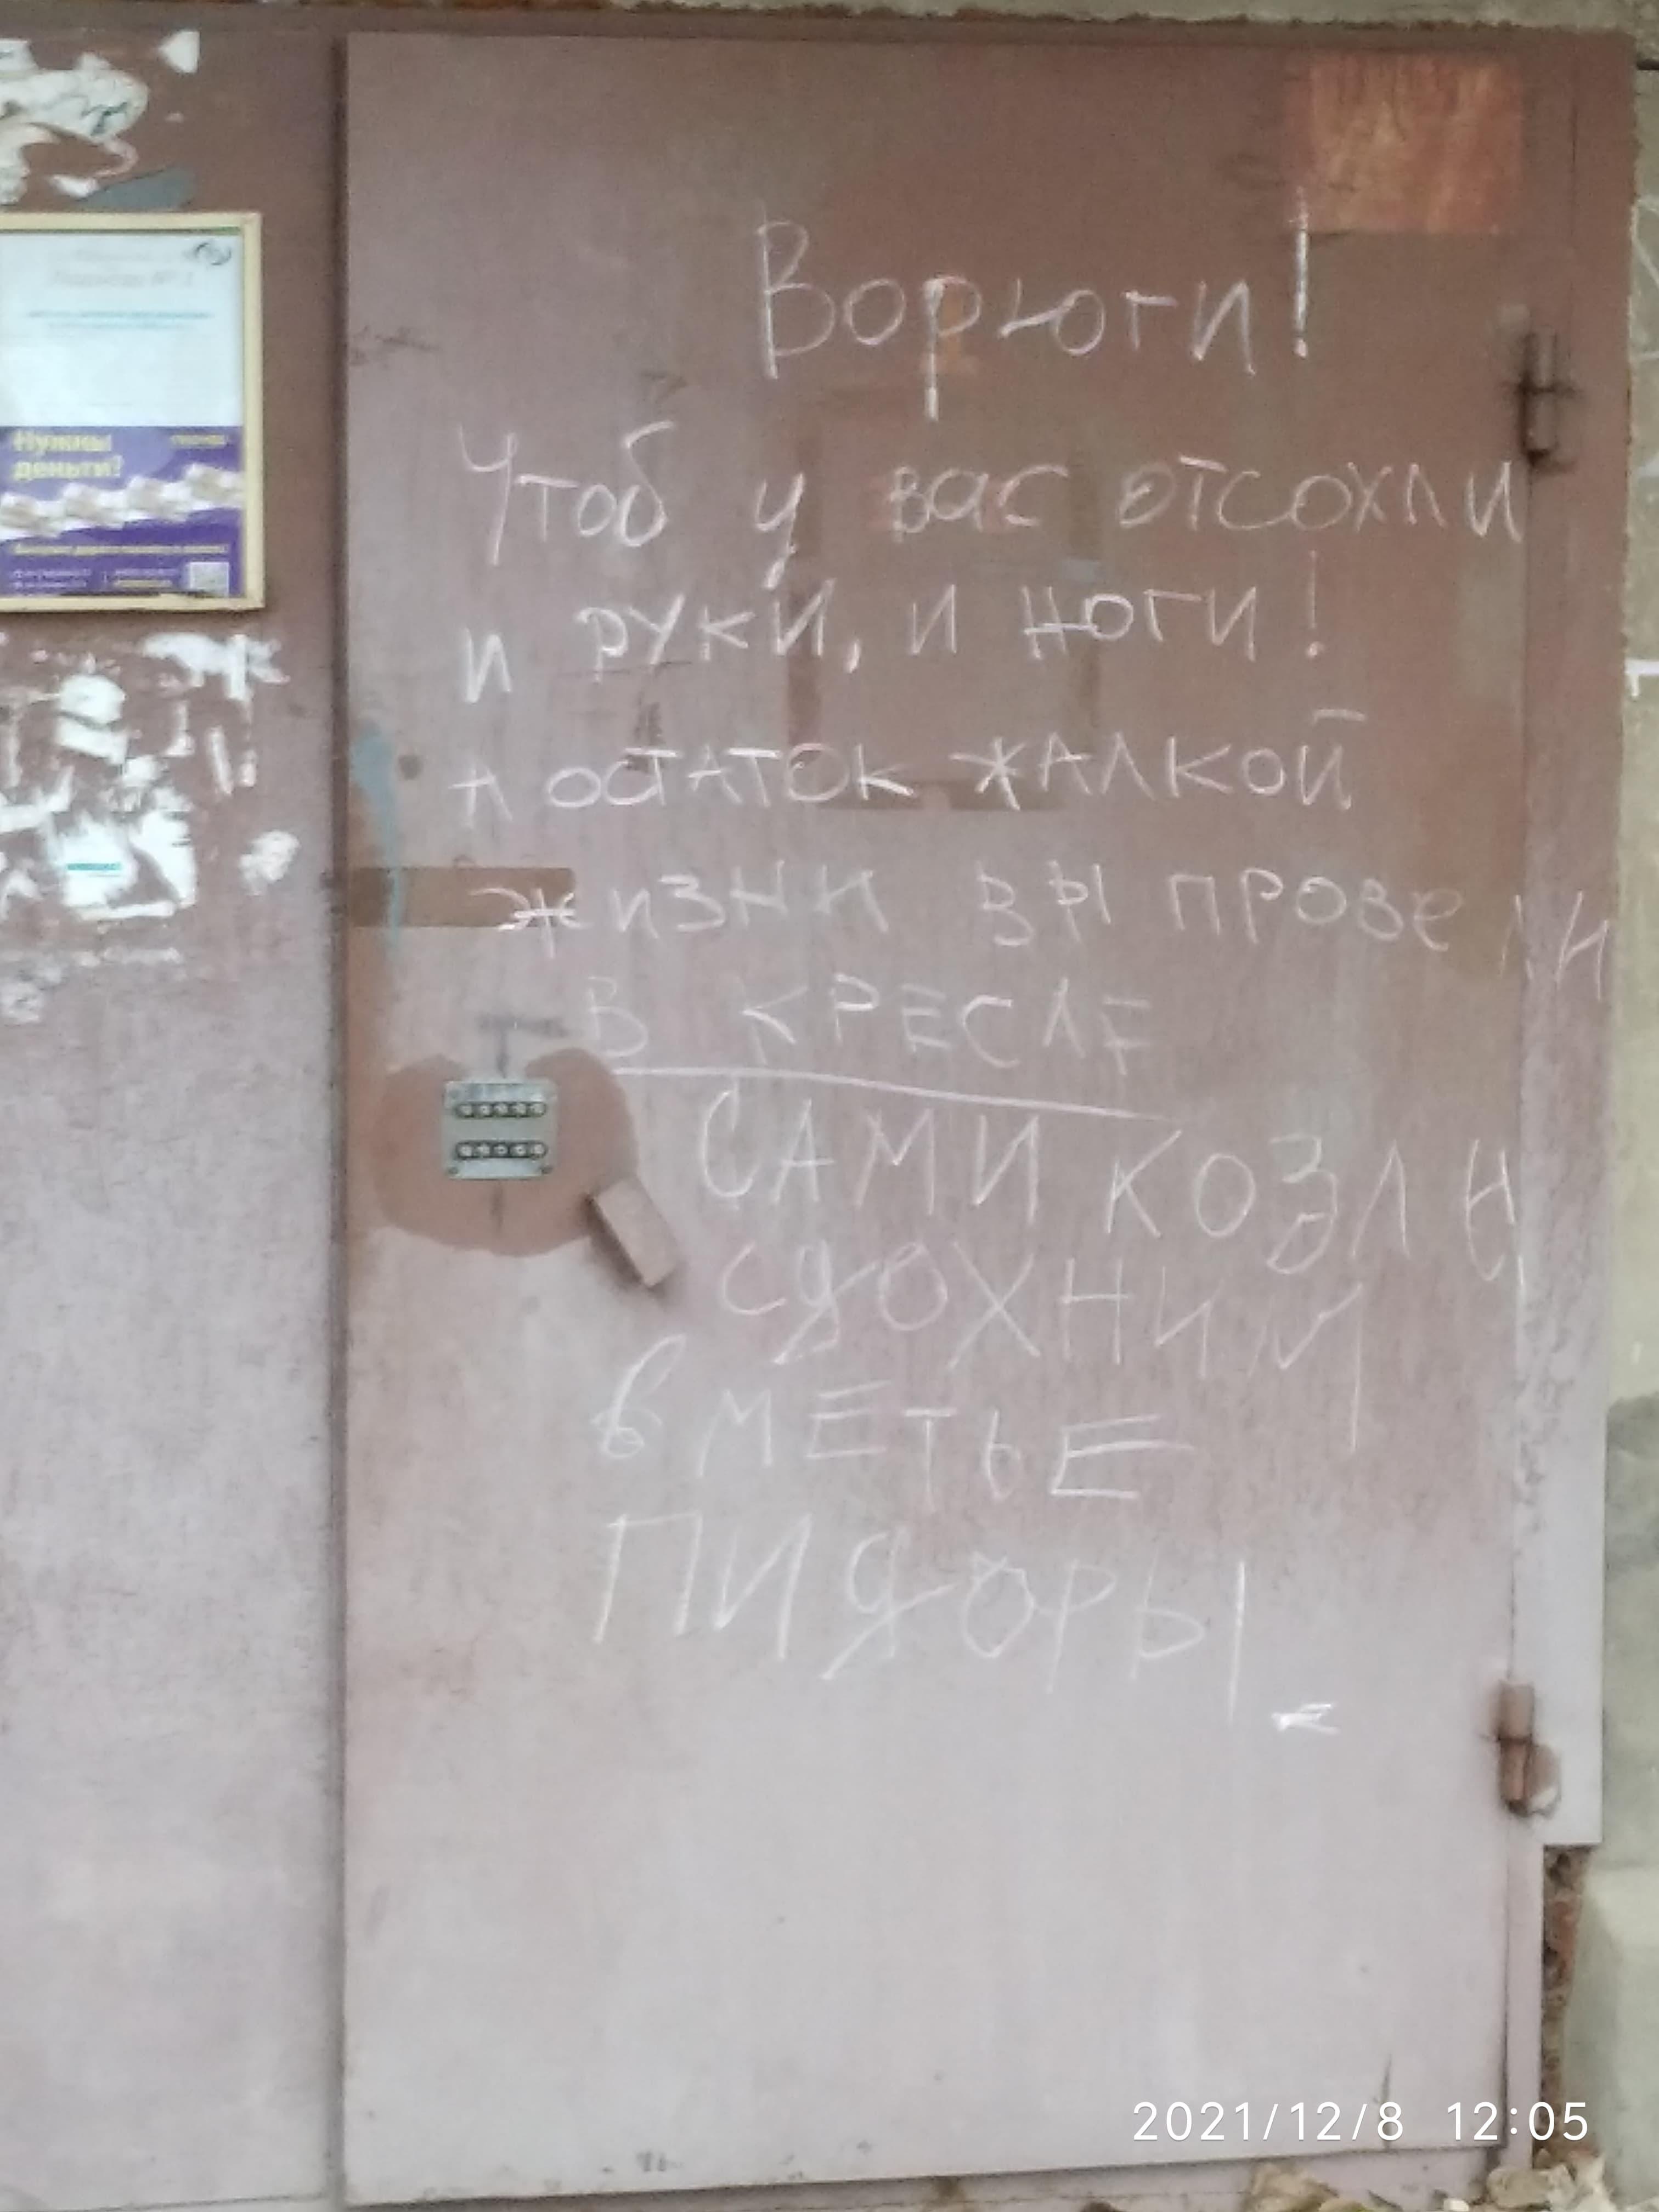 Нужны
деньги?
Ворюги!
Чтоб у вас отсохли
и руки, и ноги!
А остаток жалкой
жизни вы провели
в кресле
САМИ КОЗЛЫ
СДОХНИМ
вМЕТЬЕ
ПИДОРЫ
2021/12/8 12:05